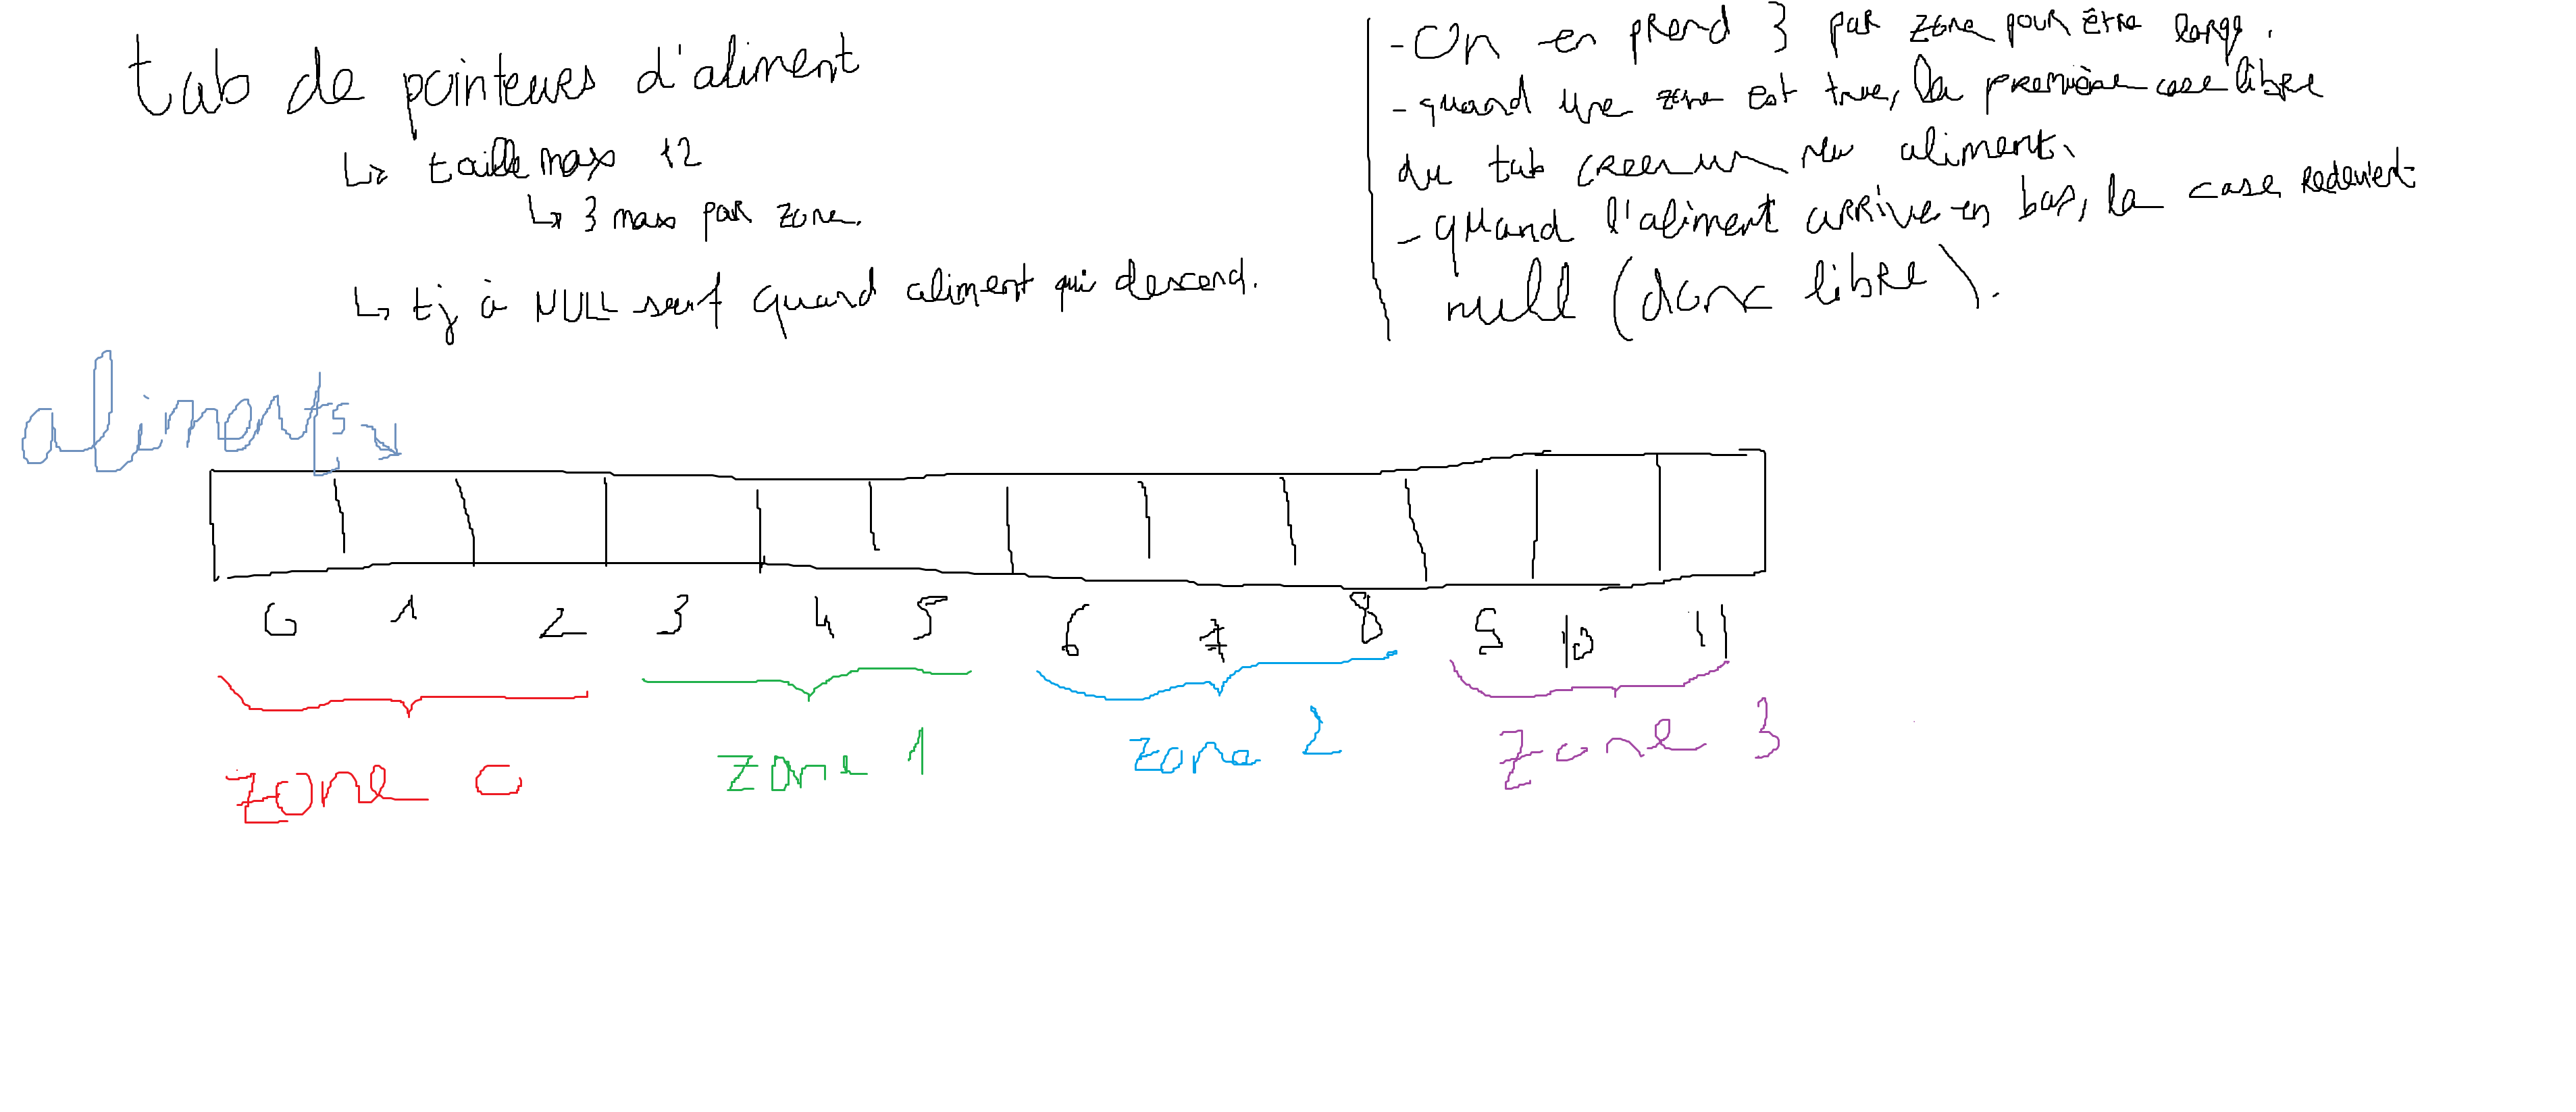 tab de pointeurs d'aliment
↳ taille max 12
↳ 3 max par zone.
↳ tj à NULL sauf quand aliment qui descend.
- On en prend 3 par zone pour être large.
- quand une zone est true, la première case libre
du tab creer un new aliment.
- quand l'aliment arrive en bas, la case redevient
null (donc libre).
aliments
0 1 2 3 4 5 6 7 8 9 10 11
zone 0 zone 1 zone 2 zone 3